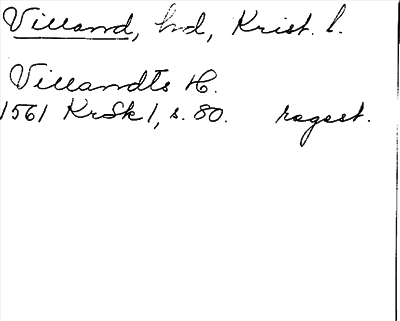 Villand, hd, Krist. l.
Villandts H.
1561 KrSk 1, s. 80. ragest.